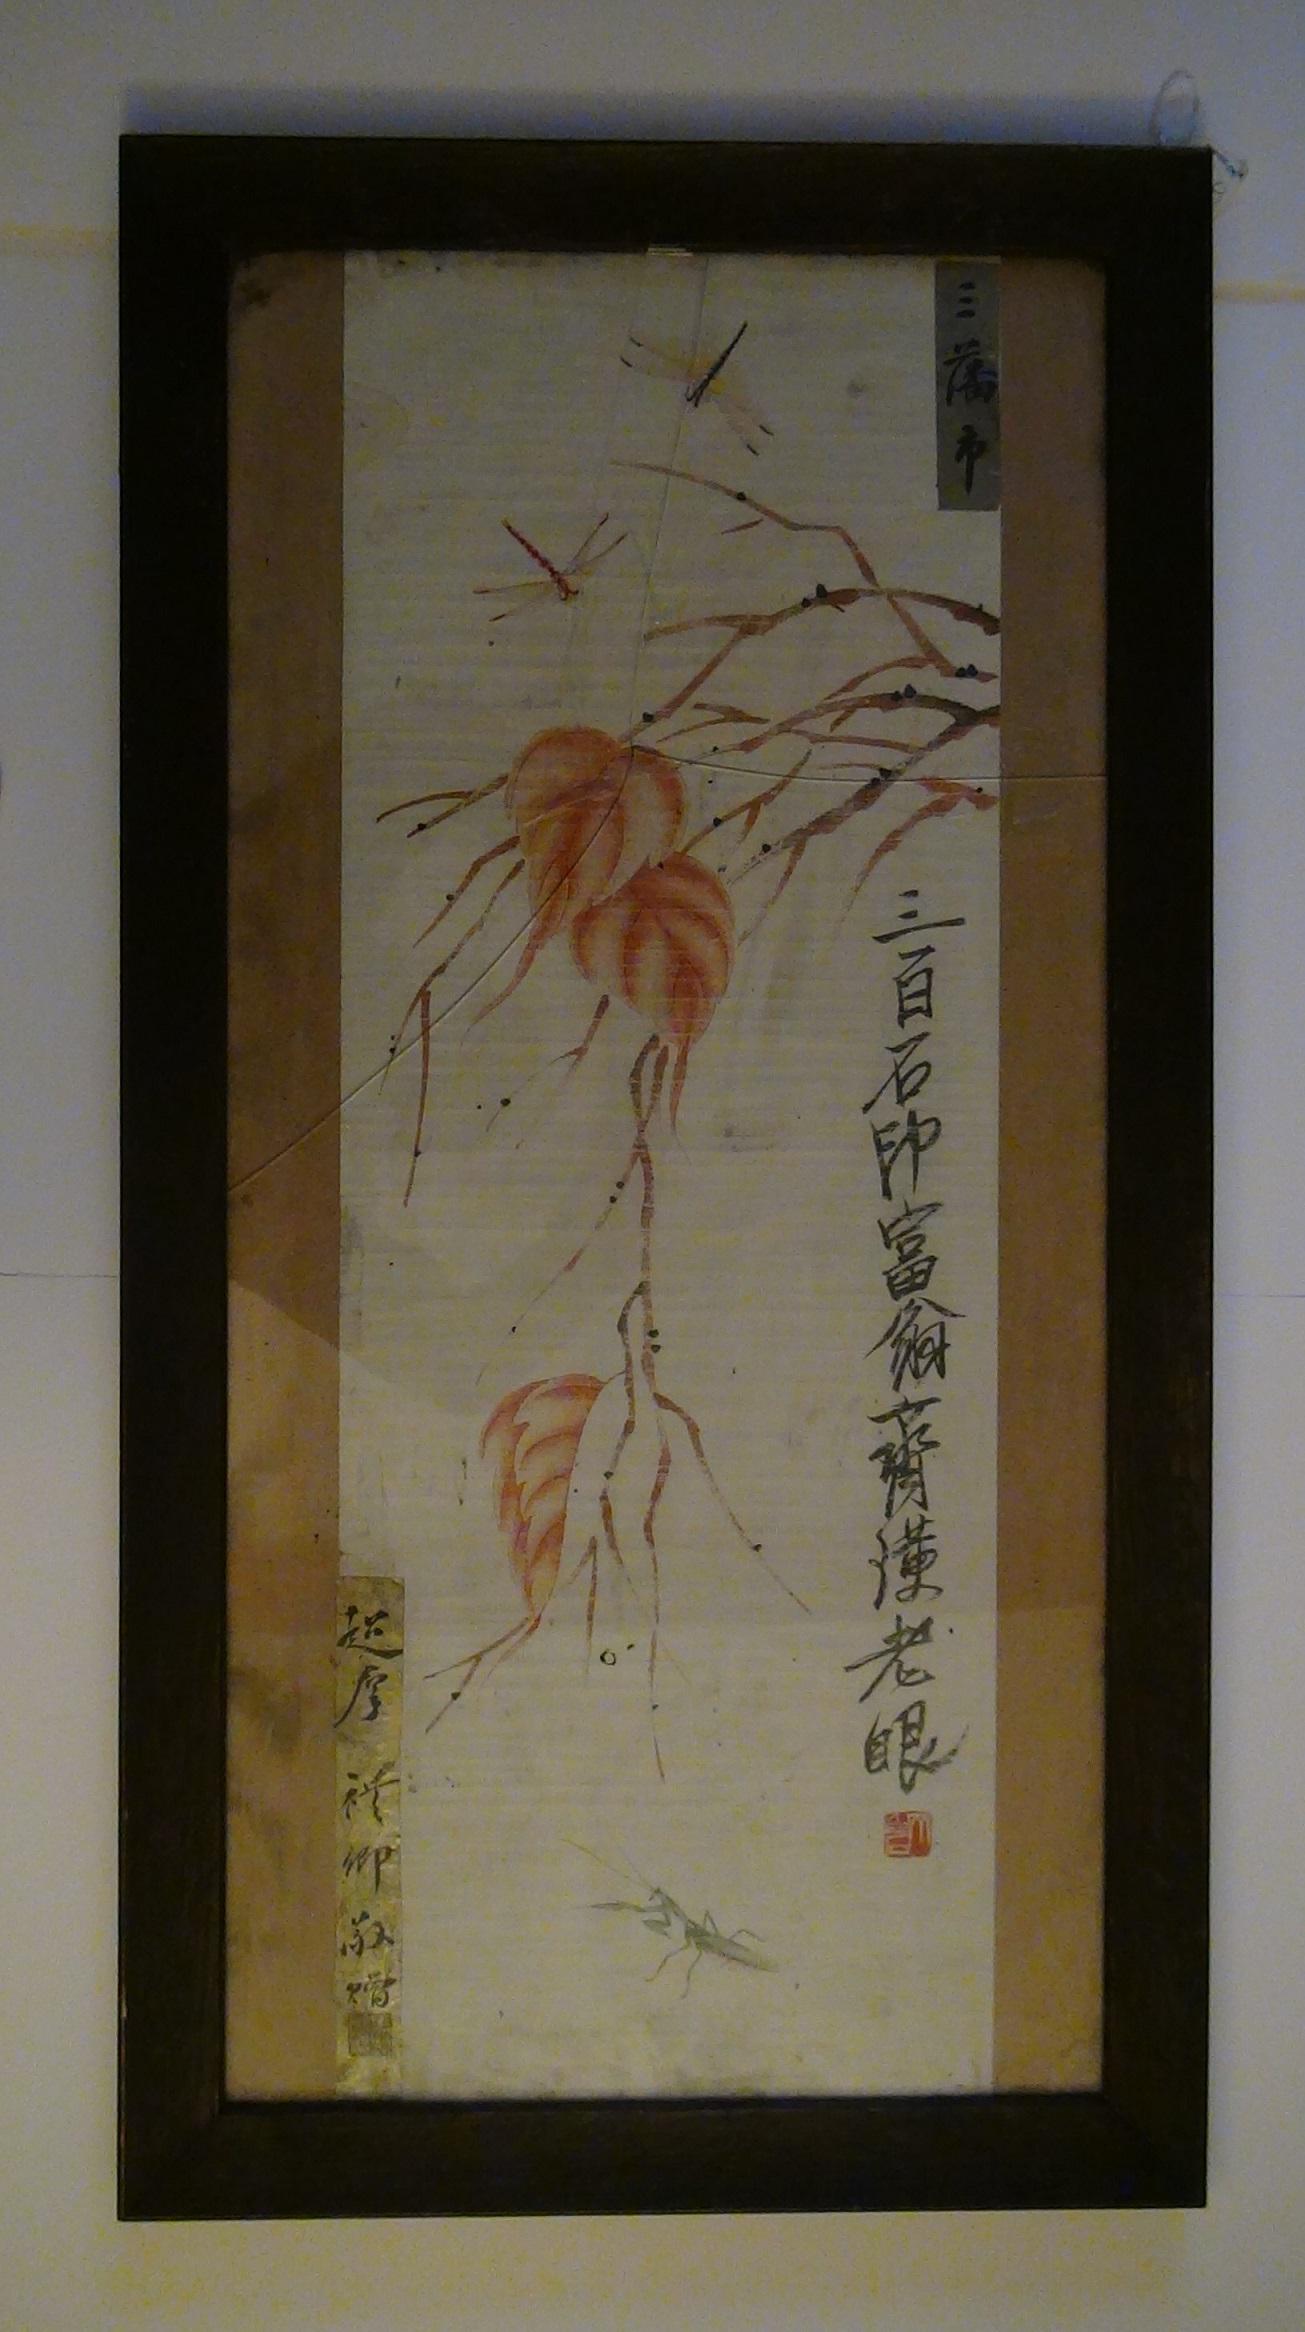 三藩市
三百石印富翁齊璜老眼
超 禮卿敬贈